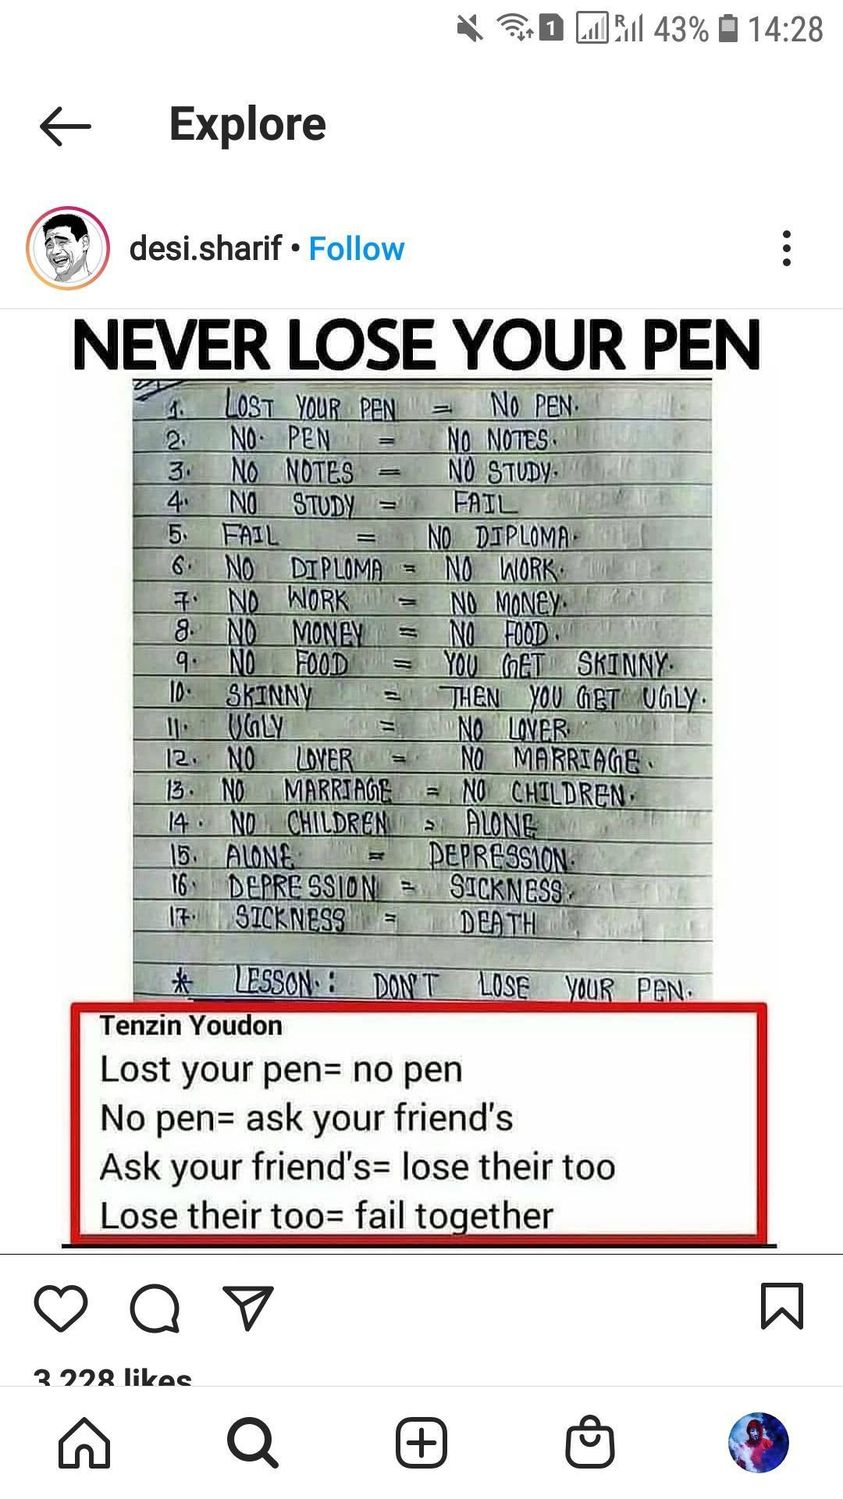 1 R 43% 14:28
Explore
desi.sharif • Follow
NEVER LOSE YOUR PEN
1. LOST YOUR PEN = NO PEN.
2. NO PEN = NO NOTES.
3. NO NOTES = NO STUDY.
4. NO STUDY = FAIL
5. FAIL = NO DIPLOMA.
6. NO DIPLOMA = NO WORK.
7. NO WORK = NO MONEY.
8. NO MONEY = NO FOOD.
9. NO FOOD = YOU GET SKINNY.
10. SKINNY = THEN YOU GET UGLY.
11. UGLY = NO LOVER.
12. NO LOVER = NO MARRIAGE.
13. NO MARRIAGE = NO CHILDREN.
14. NO CHILDREN = ALONE
15. ALONE = DEPRESSION.
16. DEPRESSION = SICKNESS.
17. SICKNESS = DEATH
* LESSON: DON'T LOSE YOUR PEN.
Tenzin Youdon
Lost your pen= no pen
No pen= ask your friend's
Ask your friend's= lose their too
Lose their too= fail together
3,228 likes